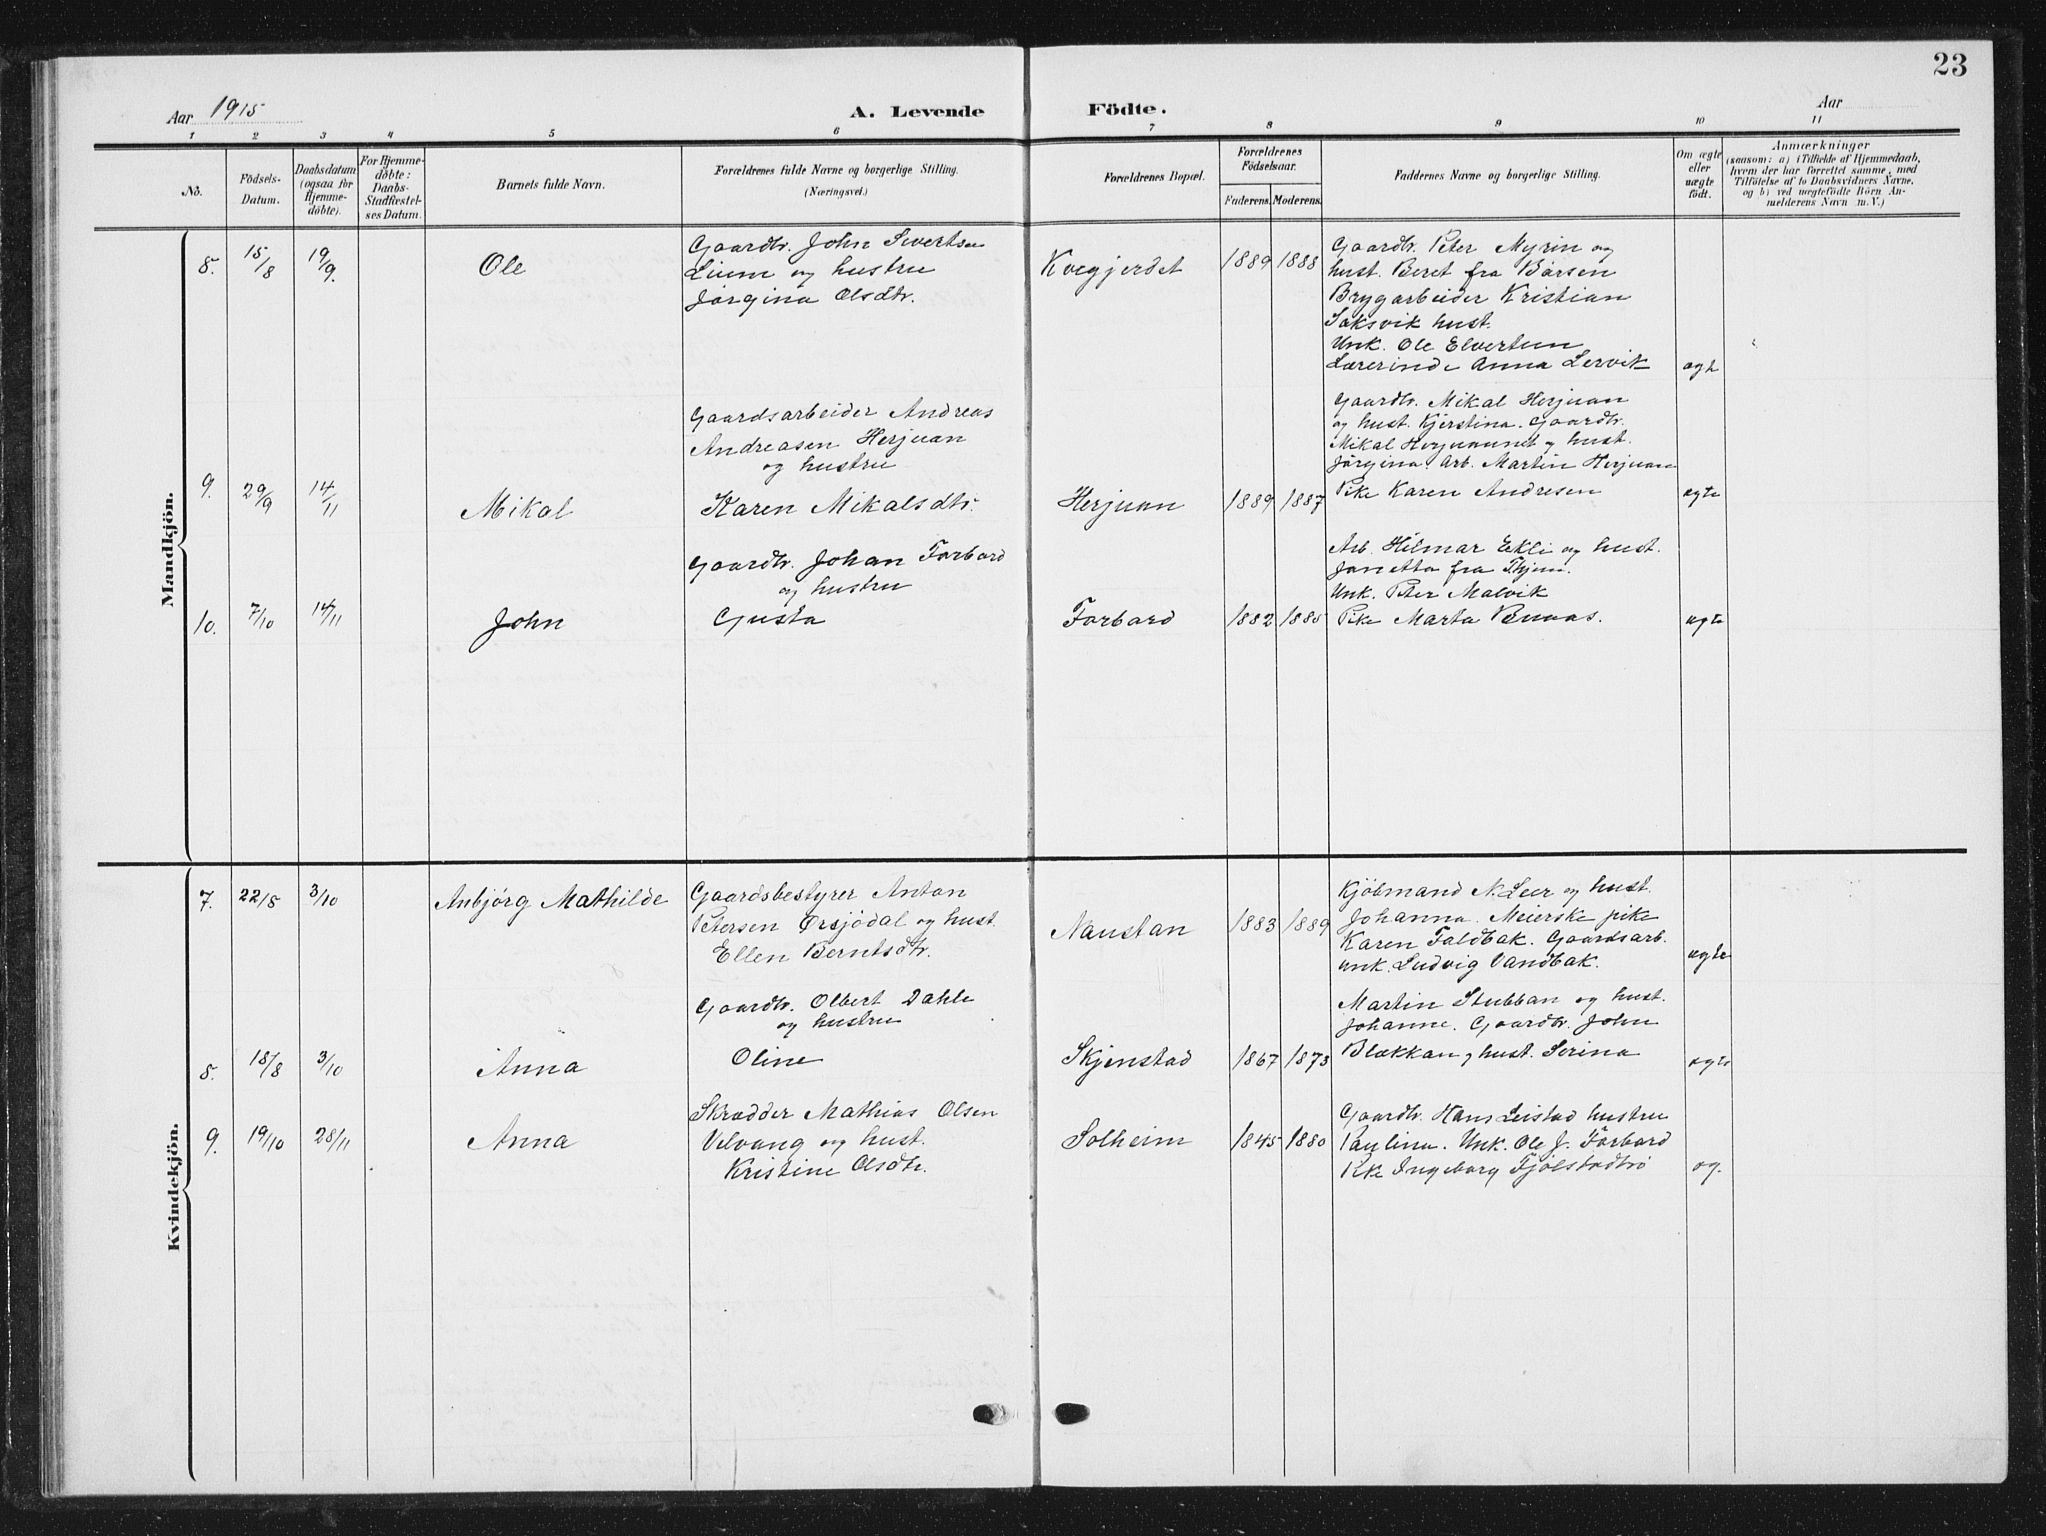 23
Aar 1915
A. Levende Födte.
Aar
1 2 3 4 5 6 7 8 9 10 11
No.
Födsels-Datum.
Daabsdatum (ogsaa for Hjemme-döbte).
For Hjemme-döbte: Daabs-Stadfæstel-ses Datum.
Barnets fulde Navn.
Forældrenes fulde Navne og borgerlige Stilling.
(Næringsvei.)
Forældrenes Bopæl.
Forældrenes Födselsaar.
Faderens. Moderens.
Faddernes Navne og borgerlige Stilling.
Om ægte eller uægte födt.
Anmærkninger
(saasom: a) i Tilfælde af Hjemmedaab,
hvem der har forrettet samme, med
Tilföielse af to Daabsvidners Navne,
og b) ved uægtefödte Börn An-
melderens Navn m. V.)
Mandkjön.
8. 15/8 19/9. Ole
Gaardbr. John Sivertsen
Lium og hustru
Jørgina Olsdtr.
Kvegjerdet 1889 1888
Gaardbr. Peter Myrin og
hust. Beret fra Børsen
Brygarbeider Kristian
Saksvik hust.
Unk. Ole Elvertum
Lærerinde Anna Lervik
ægt
9. 29/9 14/11 Mikal
Gaardsarbeider Andreas
Andreasen Herjuan
og hustru
Karen Mikalsdtr.
Herjuan 1889 1887
Gaardbr. Mikal Herjuan
og hust. Kjerstina. Gaardbr.
Mikal Herjuaunet og hust.
Jørgina. Arb. Martin Herjuan
Pike Karen Andresen
ægte
10. 7/10 14/11 John
Gaardbr. Johan Forbord
og hustru
Gusta
Forbord 1882 1885
Arb. Hilmar Ekli og hust.
Janetta fra Thjem.
Unk. Peter Malvik
Pike Marta
ægte
Kvindekjön.
7. 22/8 3/10 Anbjørg Mathilde
Gaardsbestyrer Anton
Petersen Ørsjødal og hust.
Ellen Berntsdtr.
Naustan 1883 1889
Kjöbmand N. Leer og hust.
Johanna. Meierske pike
Karen Faldbak. Gaardsarb.
unk. Ludvig Vandbak.
ægte
8. 18/8 3/10 Anna
Gaardbr. Olbert Dahle
og hustru
Oline
Skjenstad 1867 1873
Martin Stubban og hust.
Johanne. Gaardbr. John
Blækkan og hust. Serina
ægte
9. 19/10 28/11 Anna
Skrædder Mathias Olsen
Vilvang og hust.
Kristine Olsdtr.
Solheim 1845 1880
Gaardbr. Hans Leistad hustru
Paulina. Unk. Ole J. Forbord
Pike Ingeborg Fjølstadtrø
æg.